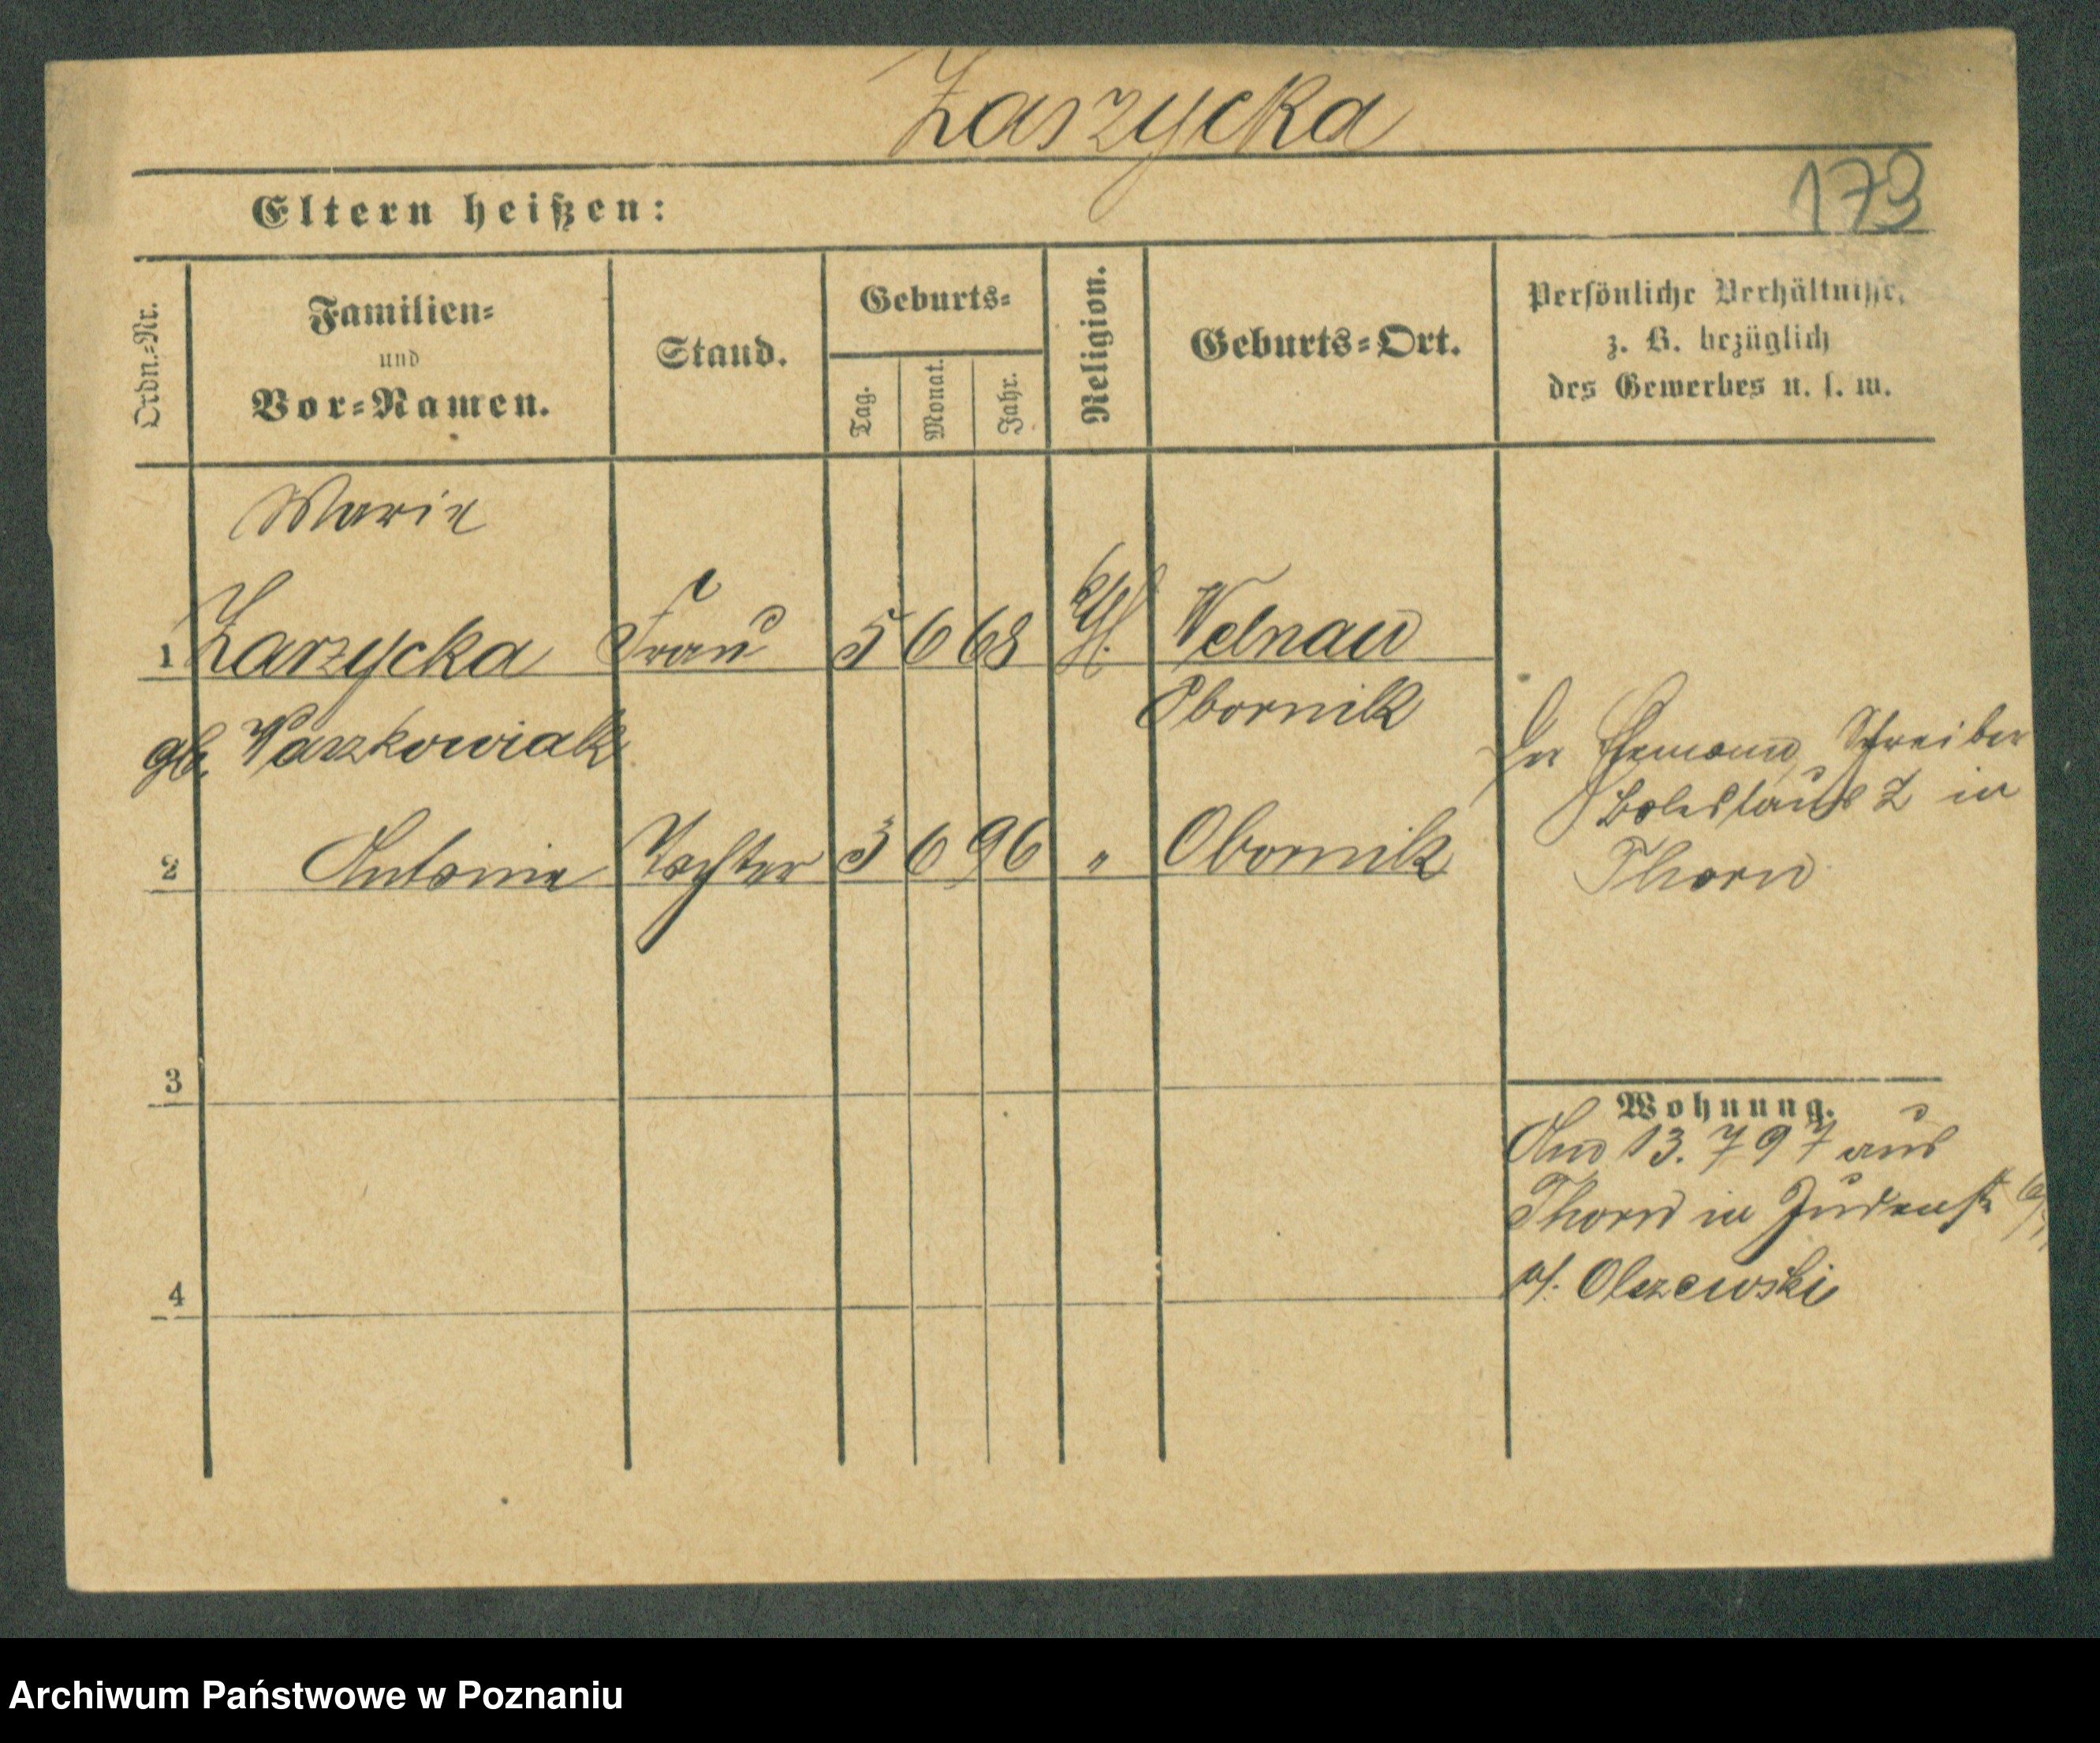 Zarzycka
173
Eltern heißen:
Ordn.-Nr.
Familien-
und
Vor-Namen.
Stand.
Geburts-
Tag.
Monat.
Jahr.
Religion.
Geburts-Ort.
Persönliche Verhältnisse,
z. B. bezüglich
des Gewerbes u. s. w.
Marie
1 Zarzycka Frau 5 6 68 kth. Welnau
gb. Warzkowiak Obornik
2 Antonie Tochter 3 6 96 " Obornik
Der Ehemann, Schreiber
Boleslaus Z in
Thorn
3
4
Wohnung.
13. 7 97 aus
Thorn in Judenstr
Olszewski
Archiwum Państwowe w Poznaniu